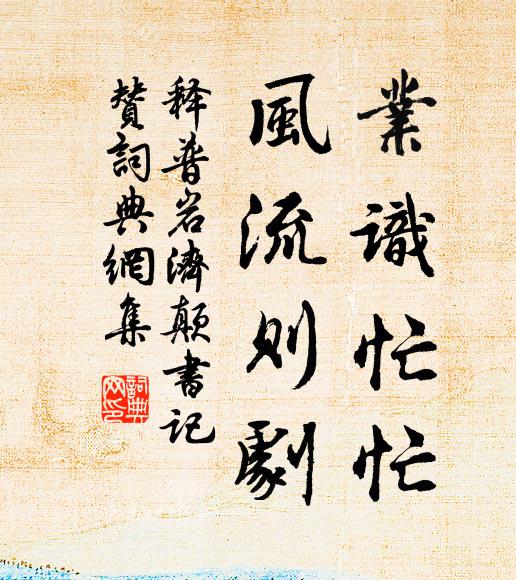 業識忙忙
風流則劇
释普岩濟顛書記
贊詞典網集
詞典網印